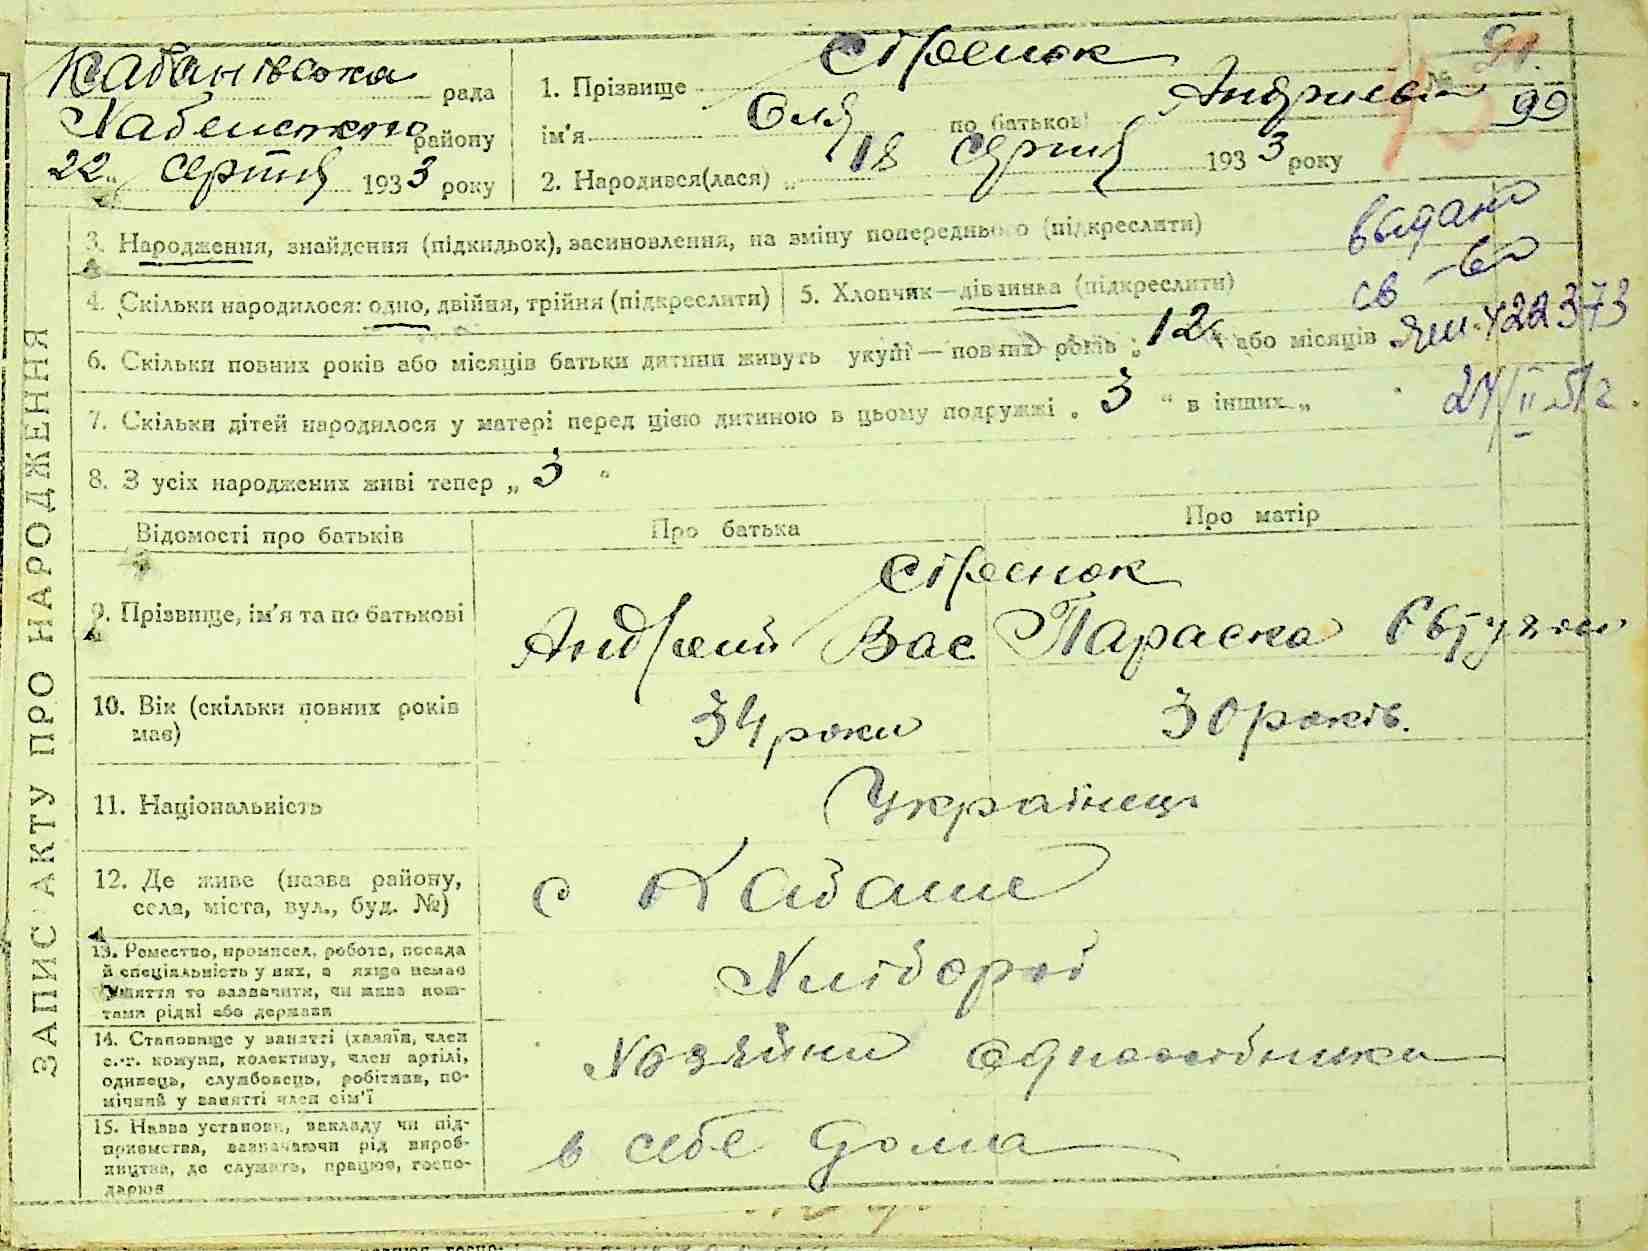 Кабанівська рада
Хабенського району
22 " серпня 1933 року
1. Прізвище
№ 91.
99
ім'я Оля по батькові Андриєвна
2. Народився(лася) „ 18 серпня 1933 року
3. Народження, знайдення (підкидьок), засиновлення, на зміну попереднього (підкреслити)
4. Скільки народилося: одно, двійня, трійня (підкреслити)
5. Хлопчик—дівчинка (підкреслити)
6. Скільки повних років або місяців батьки дитини живуть укупі — повних років „ 12 або місяців
7. Скільки дітей народилося у матері перед цією дитиною в цьому подружжі „ 3 “ в інших „
8. З усіх народжених живі тепер „ 3 “
выдано
св-во
422373
24/II 51 г.
Відомості про батьків
Про батька
Про матір
9. Прізвище, ім'я та по батькові
Андрей Вас
Параска
10. Вік (скільки повних років має)
34 роки
30 років.
11. Національність
Українец
12. Де живе (назва району, села, міста, вул., буд. №)
с Кабани
13. Ремество, промисел, робота, посада й спеціяльність у них, а якщо немає заняття то зазначити, чи живе коштами рідні або держави
Хлібороб
14. Становище у занятті (хазяїн, член с.-г. комуни, колективу, член артілі, одинець, службовець, робітник, помічний у занятті член сім'ї
Хозяйни одноосібники
15. Назва установи, закладу чи підприємства, зазначаючи рід виробництва, де служить, працює, господарює
в себе дома
ЗАПИС АКТУ ПРО НАРОДЖЕННЯ